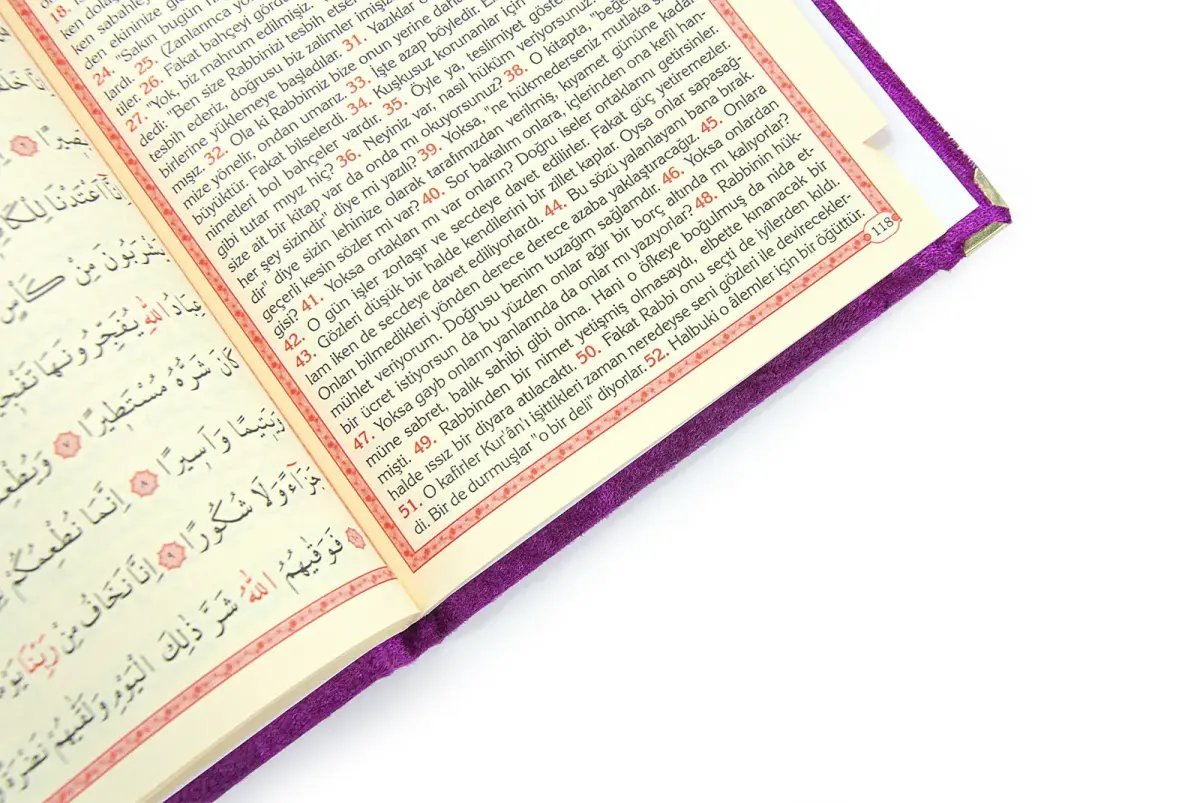 18.
ken sabahley
den ekinize
24. "Sakın bugün
lardı. 25. (Zanlarınca
tiler. 26. Fakat bahçeyi
27. "Yok, biz mahrum edilmişiz.
dedi: "Ben size Rabbinizi tesbih
tesbih ederiz, doğrusu biz zalimler
birlerine yüklemeye başladılar. 31. Yazıklar
mışız. 32. Ola ki Rabbimiz bize onun yerine daha
mize yönelir, ondan umarız. 33. İşte azap böyledir.
büyüktür. Fakat bilselerdi. 34. Kuşkusuz korunanlar için
nimetleri bol bahçeler vardır. 35. Öyle ya, teslimiyet
gibi tutar mıyız hiç? 36. Neyiniz var, nasıl hüküm veriyorsunuz?
size ait bir kitap var da onda mı okuyorsunuz? 38. O kitapta, "beğe
her şey sizindir" diye mi yazılı? 39. Yoksa, "ne hükmederseniz mutlaka
dir" diye sizin lehinize olarak tarafımızdan verilmiş, kıyamet gününe kadar
geçerli kesin sözler mi var? 40. Sor bakalım onlara, içlerinden ona kefil han-
gisi? 41. Yoksa ortakları mı var onların? Doğru iseler ortaklarını getirsinler.
42. O gün işler zorlaşır ve secdeye davet edilirler. Fakat güç yetiremezler.
43. Gözleri düşük bir halde kendilerini bir zillet kaplar. Oysa onlar sapasağ-
lam iken de secdeye davet ediliyorlardı. 44. Bu sözü yalanlayanı bana bırak.
Onları bilmedikleri yönden derece derece azaba yaklaştıracağız. 45. Onlara
mühlet veriyorum. Doğrusu benim tuzağım sağlamdır. 46. Yoksa onlardan
bir ücret istiyorsun da bu yüzden onlar ağır bir borç altında mı kalıyorlar?
47. Yoksa gayb onların yanlarında da onlar mı yazıyorlar? 48. Rabbinin hük-
müne sabret, balık sahibi gibi olma. Hani o öfkeye boğulmuş da nida et-
mişti. 49. Rabbinden bir nimet yetişmiş olmasaydı, elbette kınanacak bir
halde ıssız bir diyara atılacaktı. 50. Fakat Rabbi onu seçti de iyilerden kıldı.
51. O kafirler Kur'ân'ı işittikleri zaman neredeyse seni gözleri ile devirecekler-
di. Bir de durmuşlar "o bir deli" diyorlar. 52. Halbuki o âlemler için bir öğüttür.
118
اَعْتَدْنَا لِلْكَا
يَشْرَبُونَ مِنْ كَأْسٍ
عِبَادُ اللّٰهِ يُفَجِّرُونَهَا
كَانَ شَرُّهُ مُسْتَطِيرًا ٧ وَيُطْعِمُ
يَتِيمًا وَاَسِيرًا ٨ اِنَّمَا نُطْعِمُكُمْ
جَزَاءً وَلَا شُكُورًا ٩ اِنَّا نَخَافُ مِنْ رَبِّنَا
فَوَقٰيهُمُ اللّٰهُ شَرَّ ذٰلِكَ الْيَوْمِ وَلَقّٰيهُمْ نَضْرَةً